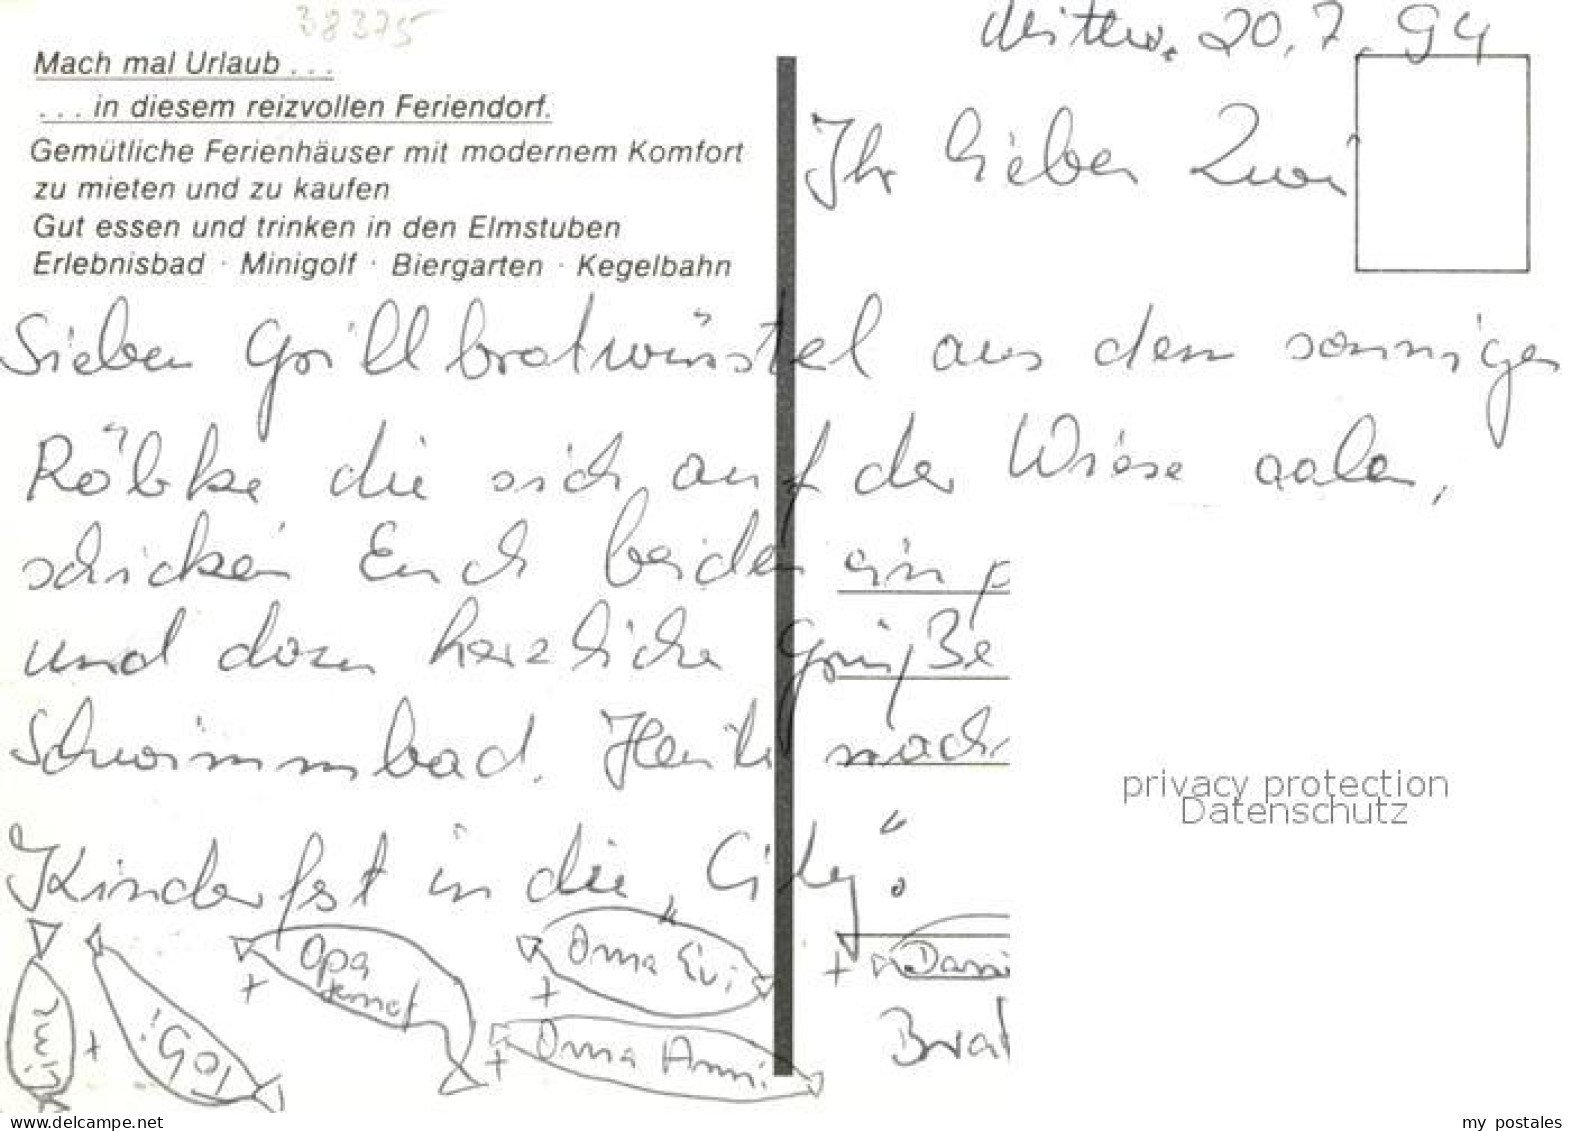 38375
Mittw. 20.7.94
Mach mal Urlaub . . .
. . . in diesem reizvollen Feriendorf.
Gemütliche Ferienhäuser mit modernem Komfort
zu mieten und zu kaufen
Gut essen und trinken in den Elmstuben
Erlebnisbad · Minigolf · Biergarten · Kegelbahn
Ihr lieben Zwei
Sieben Grillbratwürstel aus dem sonnigen
Röbke die sich auf der Wiese aalen,
schicken Euch beiden ein p
und dazu herzliche Grüße
Schwimmbad. Heute nach
Kinderfest in die „City“.
+
+
Opa
+
Oma Evi
+
Oma Anni
+
+
Dani
Brat
privacy protection
Datenschutz
www.delcampe.net
my_postales